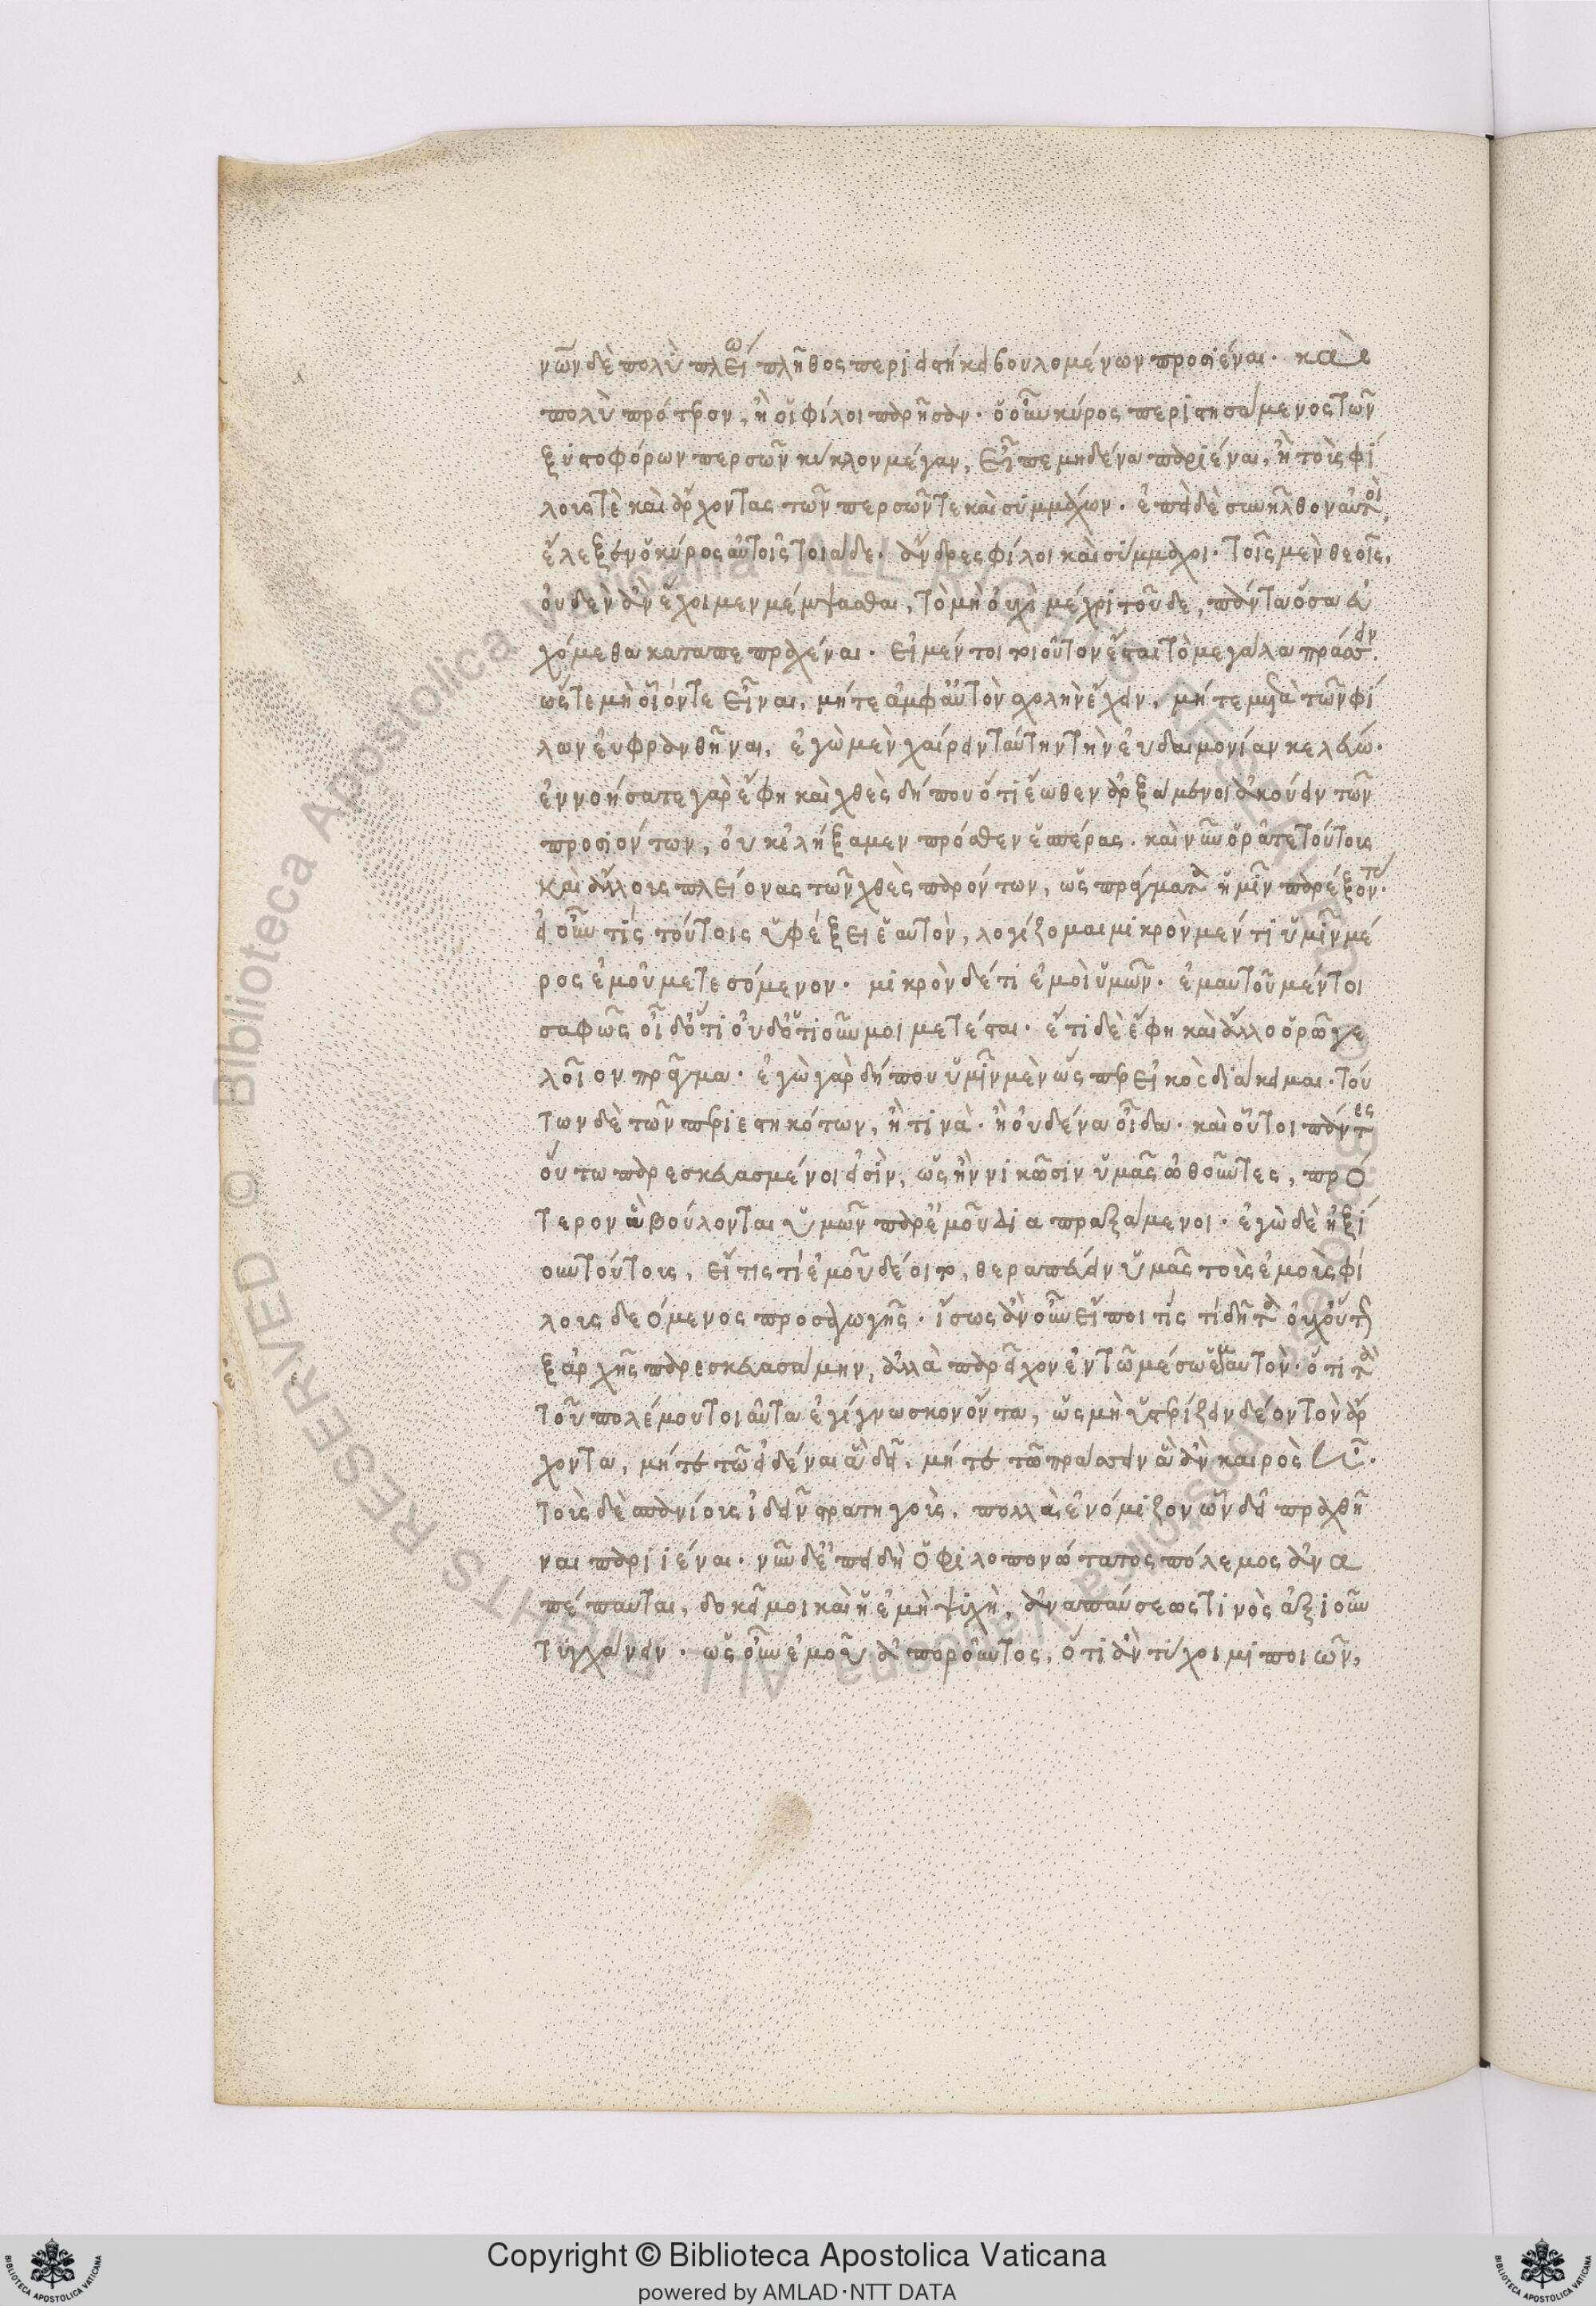 νῶν δὲ πολὺ πλείω πλῆθος περιειστήκει βουλομένων προσιέναι· καὶ
πολὺ πρότερον, ἢ οἱ φίλοι παρῆσαν. ὁ οὖν κύρος περιστησάμενος τῶν
ξυστοφόρων περσῶν κύκλον μέγαν, εἶπε μηδένα παριέναι, ἢ τοὺς φί
λους τὲ καὶ ἄρχοντας τῶν περσῶν τε καὶ συμμάχων. ἐπεὶ δὲ συνῆλθον αὐτοὶ,
ἔλεξεν ὁ κύρος αὐτοῖς τοιάδε. ἄνδρες φίλοι καὶ σύμμαχοι. τοῖς μὲν θεοῖς,
οὐδὲν ἂν ἔχοιμεν μέμψασθαι, τὸ μὴ οὐχὶ μέχρι τοῦδε, πάντα ὅσα εὐ
χόμεθα καταπεπραχέναι. εἰ μέντοι τοιοῦτον ἔσται τὸ μεγάλα πράσσειν,
ὥστε μὴ οἷόντε εἶναι, μήτε ἀμφ' αὑτὸν σχολὴν ἔχειν, μήτε μετὰ τῶν φί
λων εὐφρανθῆναι, ἐγὼ μὲν χαίρειν ταύτην τὴν εὐδαιμονίαν κελεύω.
ἐννοήσατε γὰρ ἔφη καὶ χθὲς δήπου ὅτι ἕωθεν ἀρξάμενοι ἀκούειν τῶν
προσιόντων, οὐκ ἐλήξαμεν πρόσθεν ἑσπέρας. καὶ νῦν ὁρᾶτε τούτους
καὶ ἄλλους πλείονας τῶν χθὲς παρόντων, ὡς πράγματα ἡμῖν παρέξοντες.
εἰ οὖν τίς τούτοις ὑφέξει ἑαυτὸν, λογίζομαι μικρὸν μέν τι ὑμῖν μέ
ρος ἐμοῦ μετεσόμενον. μικρὸν δέ τι ἐμοὶ ὑμῶν. ἐμαυτοῦ μέντοι
σαφῶς οἶδ' ὅτι οὐδ' ὁτιοῦν μοι μετέσται. ἔτι δὲ ἔφη καὶ ἄλλο ὁρῶ γε
λοῖον πρᾶγμα. ἐγὼ γὰρ δήπου ὑμῖν μὲν ὥσπερ εἰκὸς διάκειμαι. τού
των δὲ τῶν περιεστηκότων, ἤ τινὰ. ἢ οὐδένα οἶδα. καὶ οὗτοι πάντες
οὕτω παρεσκευασμένοι εἰσὶν, ὡς ἢν νικῶσιν ὑμᾶς ὠθοῦντες, πρό
τερον ἃ βούλονται ὑμῶν παρ' ἐμοῦ διαπραξάμενοι. ἐγὼ δὲ ἠξί
ουν τούτους, εἴ τις τί ἐμοῦ δέοιτο, θεραπεύειν ὑμᾶς τοὺς ἐμοὺς φί
λους δεόμενος προσαγωγῆς. ἴσως ἂν οὖν εἴποι τίς τί δῆτα οὐχ οὕτως ἐ
ξ ἀρχῆς παρεσκευασάμην, ἀλλὰ παρεῖχον ἐν τῶ μέσω ἐμαυτὸν. ὅτι τὰ
τοῦ πολέμου τοιαῦτα ἐγίγνωσκον ὄντα, ὡς μὴ ὑστερίζειν δέον τὸν ἄρ
χοντα, μήτε τῶ εἰδέναι ἃ δεῖ, μήτε τῶ πράσσειν ἃ ἂν καιρὸς ᾖ.
τοὺς δὲ σπανίους ἰδεῖν στρατηγοὺς, πολλὰ ἐνόμιζον ὧν δεῖ πραχθῆ
ναι παριέναι. νῦν δ' ἐπειδὴ ὁ φιλοπονώτατος πόλεμος ἀνα
πέπαυται, δοκεῖ μοι καὶ ἡ ἐμὴ ψυχὴ, ἀναπαύσεως τινὸς ἀξιοῦν
τυγχάνειν. ὡς οὖν ἐμοῦ ἀποροῦντος, ὅτι ἂν τύχοιμι ποιῶν,
Copyright © Biblioteca Apostolica Vaticana
powered by AMLAD·NTT DATA